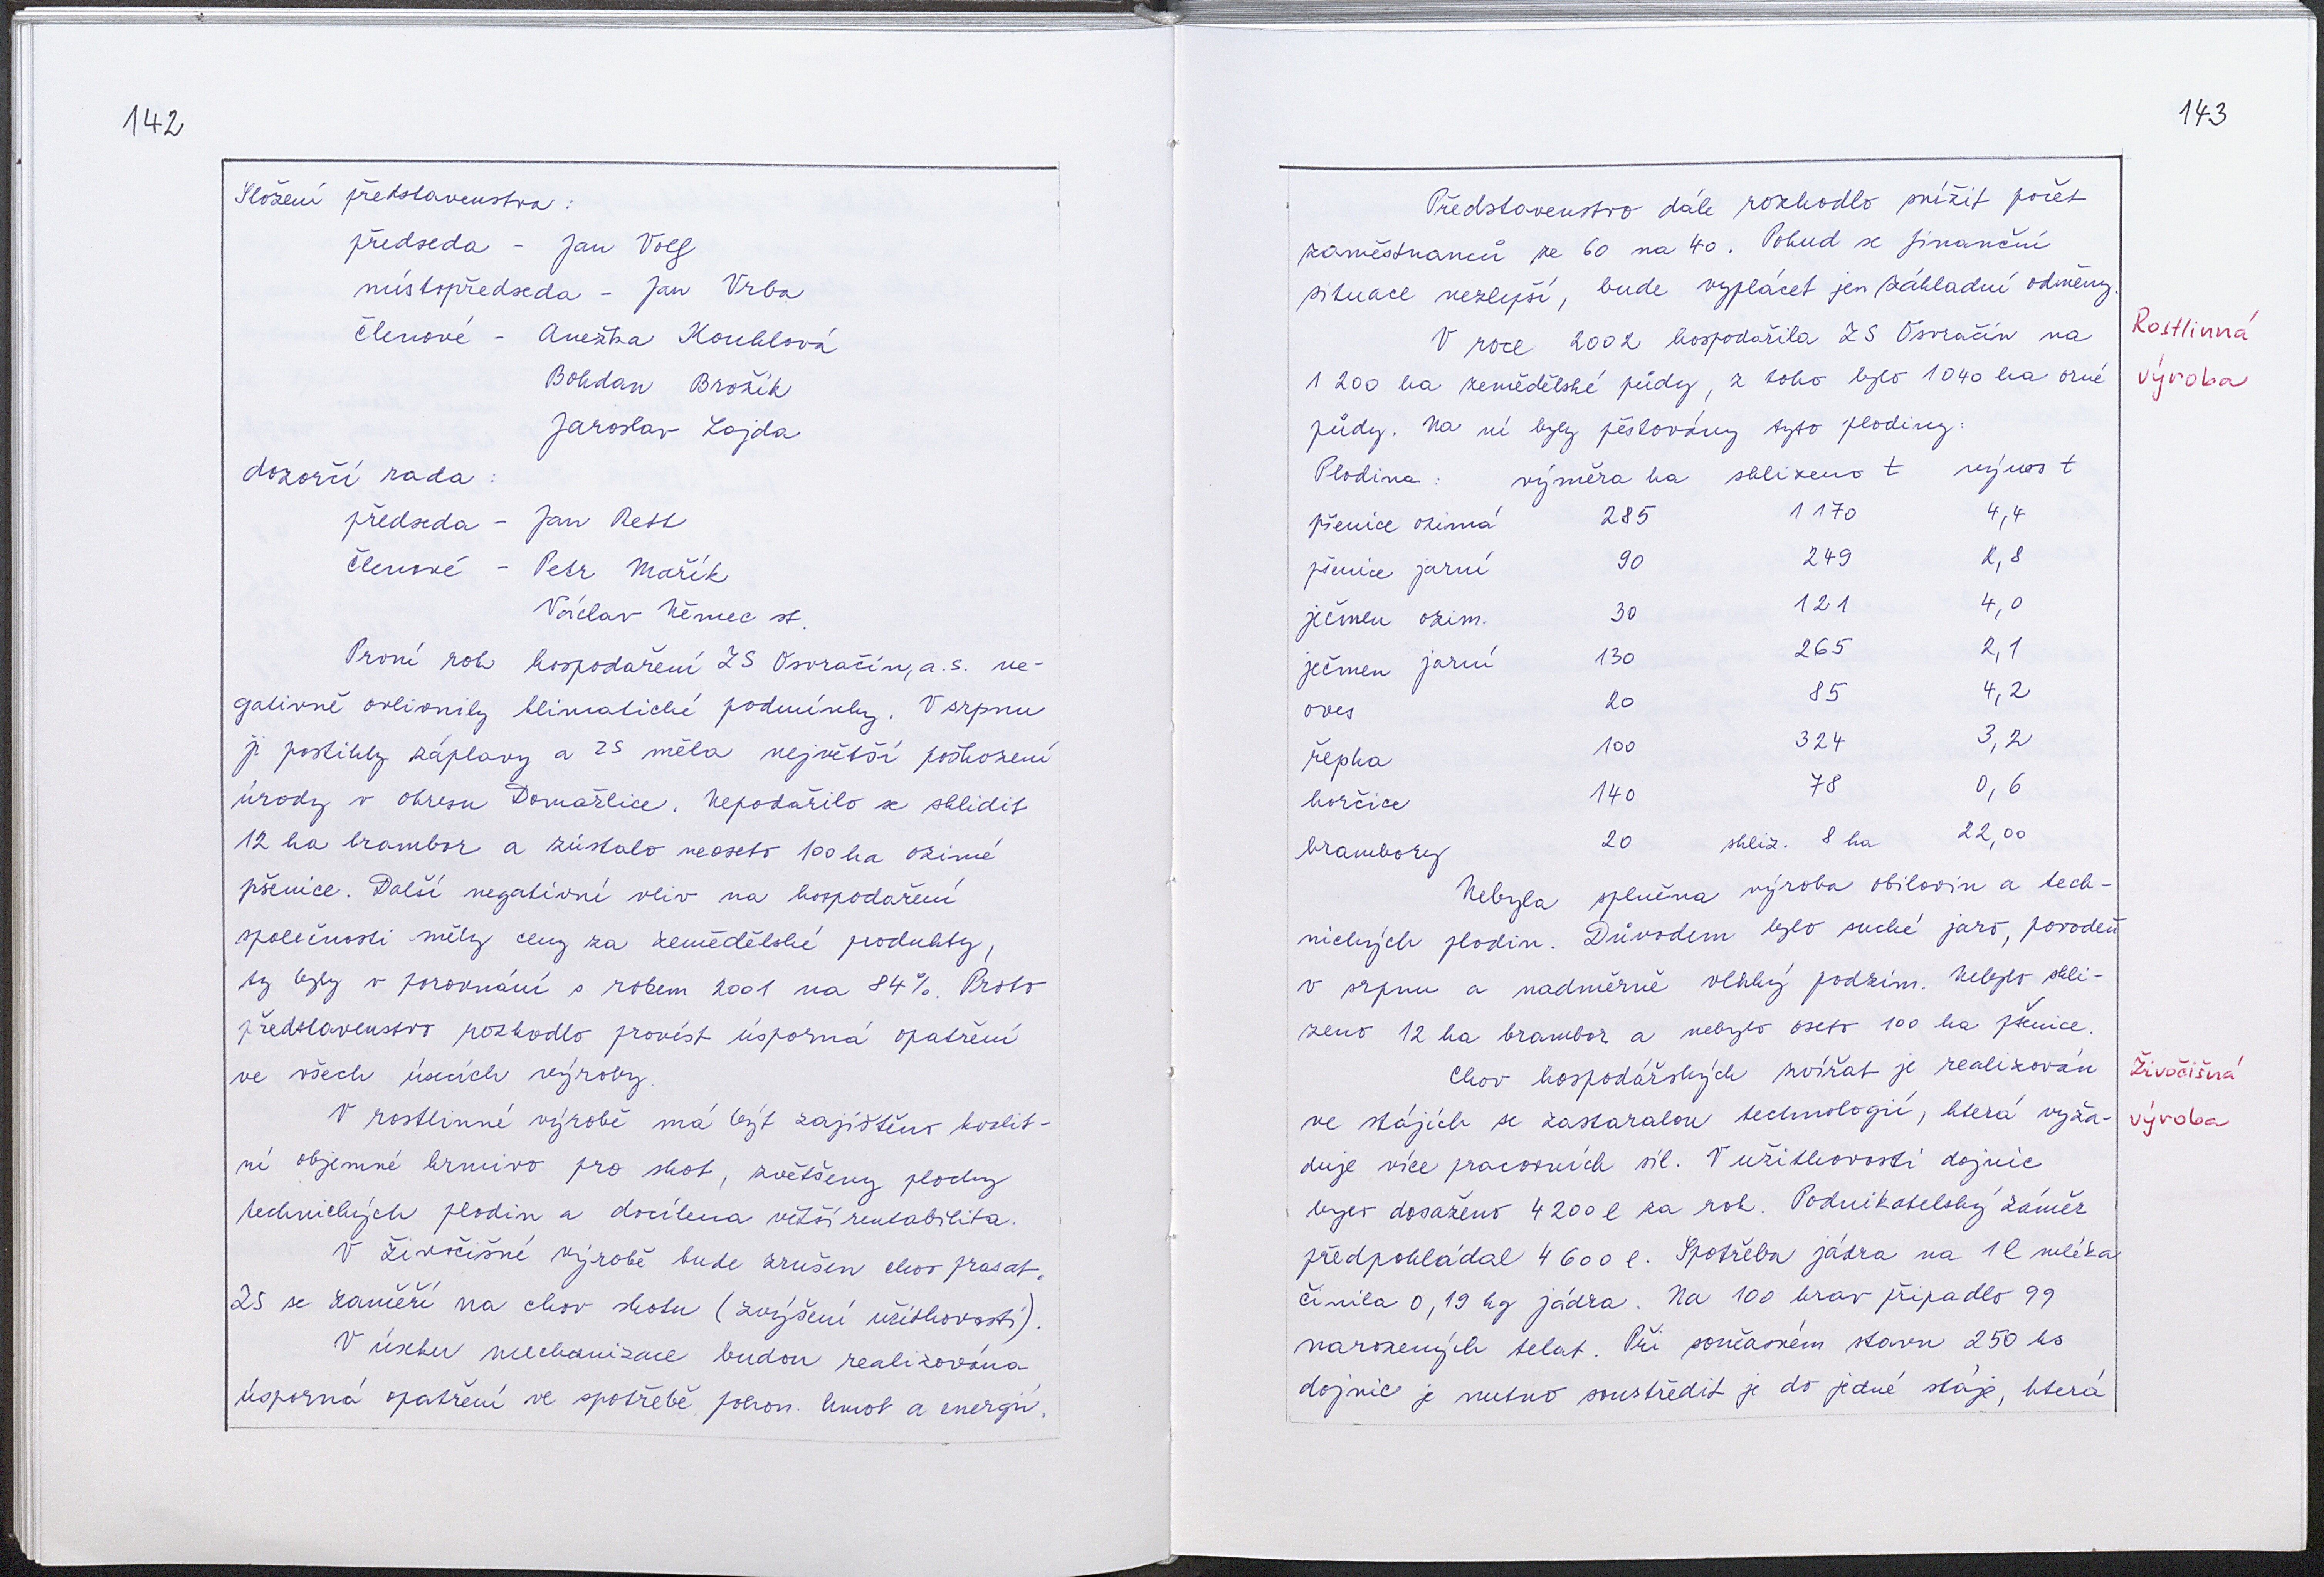 142
Složení představenstva :
předseda - Jan Volf
místopředseda - Jan Vrba
členové - Anežka Kouhlová
Bohdan Brožík
Jaroslav Lajda
dozorčí rada :
předseda - Jan Rett
členové - Petr Mařík
Václav Němec st.
První rok hospodaření ZS Osvračín, a.s. ne-
gativně ovlivnily klimatické podmínky. V srpnu
ji postihly záplavy a ZS měla největší poškození
úrody v okresu Domažlice. Nepodařilo se sklidit
12 ha brambor a zůstalo neoseto 100 ha ozimé
pšenice. Další negativní vliv na hospodaření
společnosti měly ceny za zemědělské produkty,
ty byly v porovnání s rokem 2001 na 84%. Proto
představenstvo rozhodlo provést úsporná opatření
ve všech úsecích výroby.
V rostlinné výrobě má být zajištěno kvalit-
ní objemné krmivo pro skot, zvětšeny plochy
technických plodin a docílena větší rentabilita.
V živočišné výrobě bude zrušen chov prasat.
ZS se zaměří na chov skotu (zvýšení užitkovosti).
V úseku mechanizace budou realizována
úsporná opatření ve spotřebě pohon. hmot a energií.
143
Představenstvo dále rozhodlo snížit počet
zaměstnanců ze 60 na 40. Pokud se finanční
situace nezlepší, bude vyplácet jen základní odměny.
Rostlinná
výroba
V roce 2002 hospodařila ZS Osvračín na
1 200 ha zemědělské půdy, z toho bylo 1040 ha orné
půdy. Na ní byly pěstovány tyto plodiny:
Plodina : výměra ha sklizeno t výnos t
pšenice ozimá 285 1 170 4,4
pšenice jarní 90 249 2,8
ječmen ozim. 30 121 4,0
ječmen jarní 130 265 2,1
oves 20 85 4,2
řepka 100 324 3,2
hořčice 140 78 0,6
brambory 20 skliz. 8 ha 22,00
Nebyla splněna výroba obilovin a tech-
nických plodin. Důvodem bylo suché jaro, povodeň
v srpnu a nadměrně vlhký podzim. Nebylo skli-
zeno 12 ha brambor a nebylo oseto 100 ha pšenice.
Živočišná
výroba
Chov hospodářských zvířat je realizován
ve stájích se zastaralou technologií, která vyža-
duje více pracovních sil. V užitkovosti dojnic
bylo dosaženo 4 200 l za rok. Podnikatelský záměr
předpokládal 4 600 l. Spotřeba jádra na 1 l mléka
činila 0,19 kg jádra. Na 100 krav připadlo 99
narozených telat. Při současném stavu 250 ks
dojnic je nutno soustředit je do jedné stáje, která